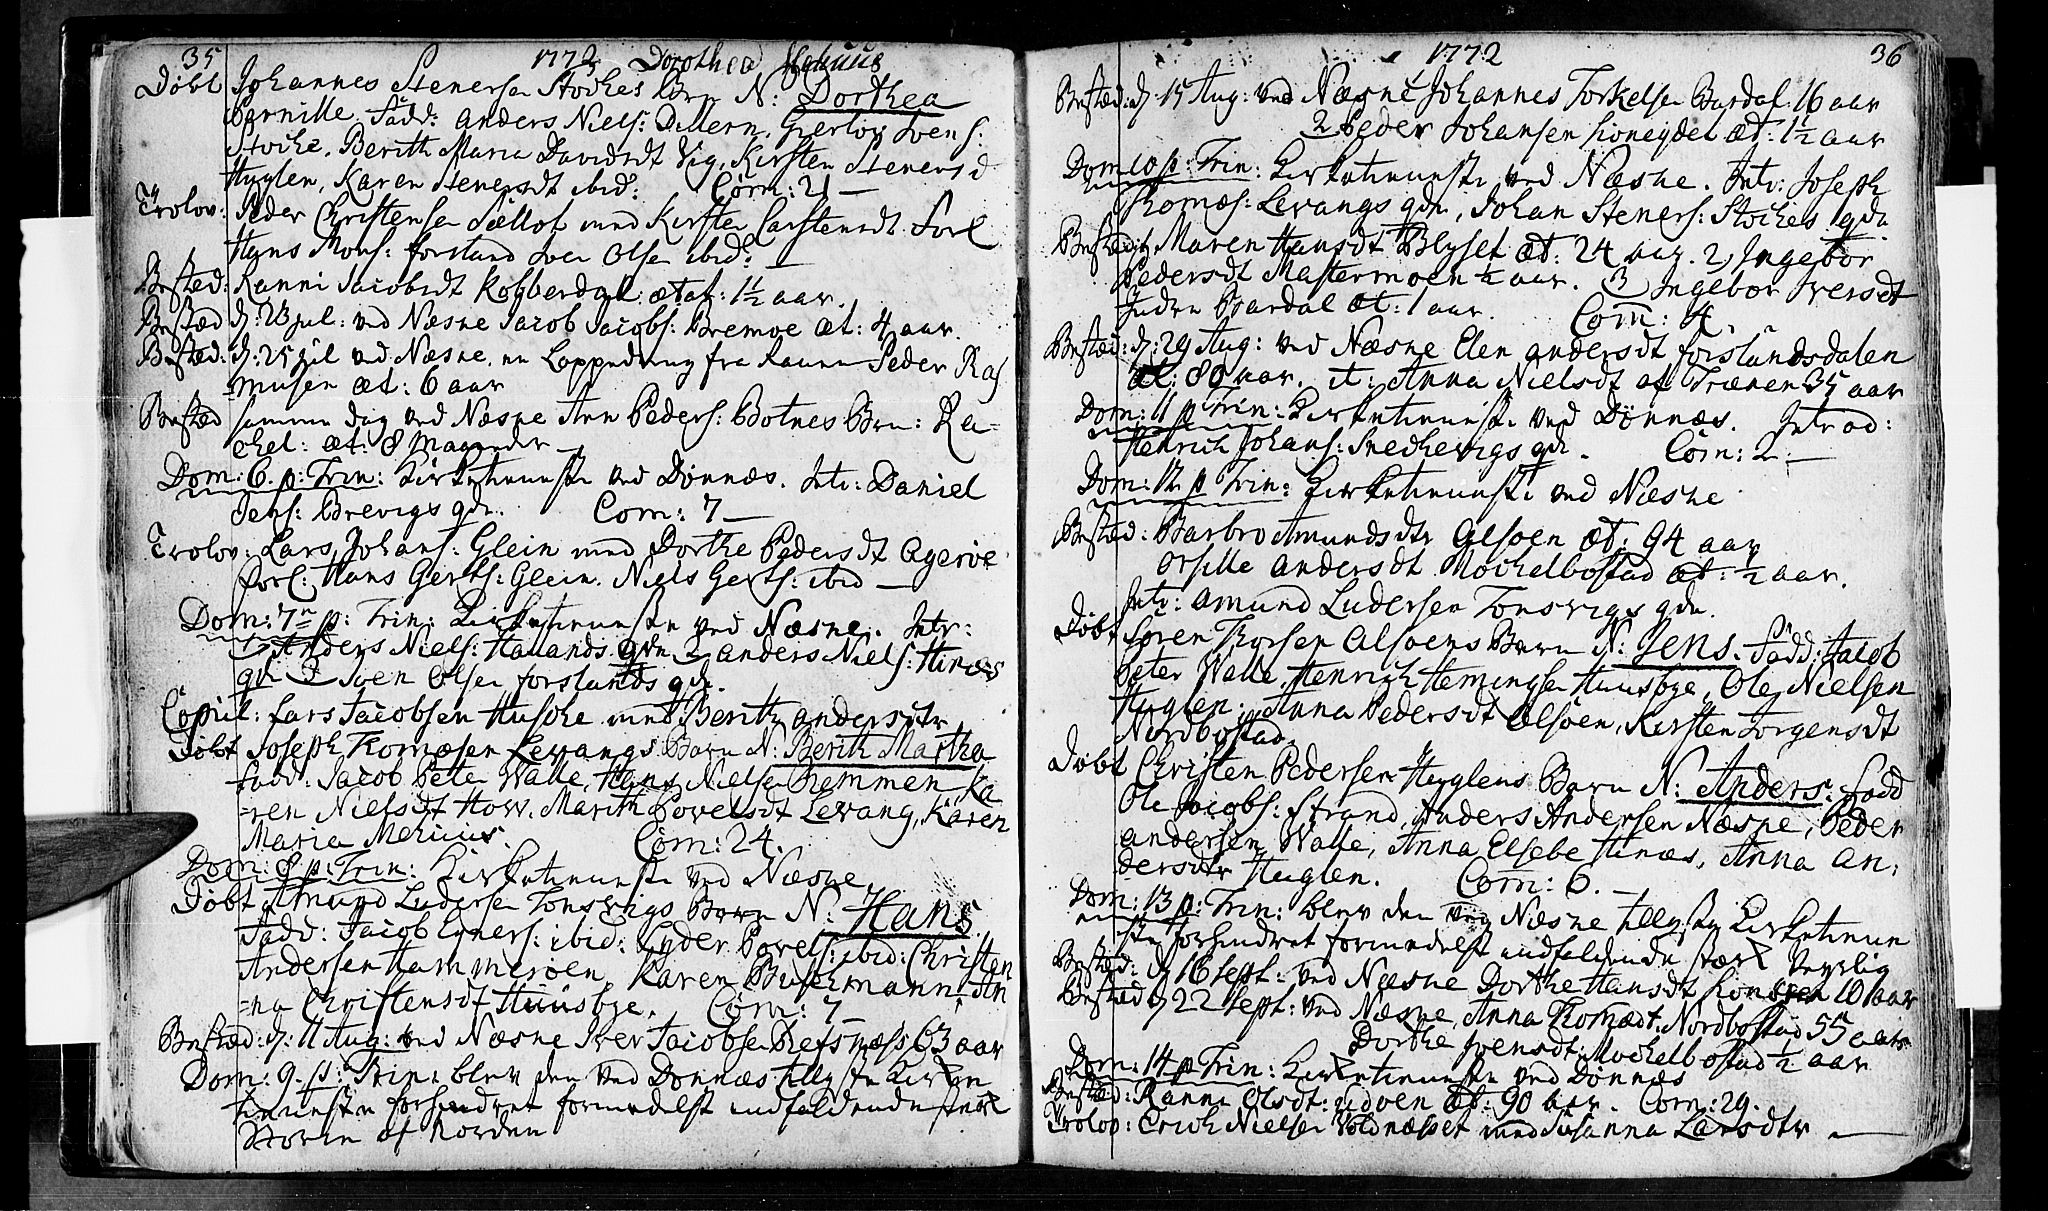 35 1772 Dorothea
Døbt Johannes Stenersen Stockes Barn N: Dorthea
Pernille. Fadd: Anders Niels: Dillern, Gierlov Ivens:
Stocke. Berith Maria Davidsdt Vig, Kirsten Stenersd
Huglen, Karen Stenersdt ibid: Com: 21 —
Trolov: Peder Christensen Siællot med Kirsten Carstensdt. Forl
Hans Mons: Forstand Iver Olsen ibid: —
Bested: Ranni Jacobsdt Kobberdal ætat: 1½ aar.
Bestæd d: 23 jul: ved Næsne Jacob Jacobs: Bremoe æt: 4 aar.
Bestæd: d: 25 jul ved Næsne en Loppedreng fra Ranen Peder Ras
musen æt: 6 aar
Bested samme dag ved Næsne Ane Peders: Botnes Barn: Ra=
chel: æt: 8 Maaneder —
Dom: 6. p: Trin: Kirketienneste ved Dønnæs. Intr: Daniel
Jens: Brevigs qde. Com: 7 —
Trolov: Lars Johans: Glein med Dorthe Pedersdt Agerøe
forl: Hans Gerts: Glein. Niels Gerts: ibid —
Dom: 7de p: Trin: Kirketienneste ved Næsne. Intr:
1 Anders Niels: Hallands qde 2 Anders Niels: Hinæs
qde 3 Iven Olsen forslands qde.
Copul: Lars Jacobsen Huscke med Berith Andersdtr
Døbt Joseph Thomæsen Levangs Barn N: Berith Martha
fadd: Jacob Peter Walle, Hans Nielsen Remmen, Ka
=ren Nielsdt How. Marith Povelsdt Levang, Karen
Maria Mehuus. Com: 24.
Dom: 8 p: Trin: Kirketienneste ved Næsne
Døbt Amund Ludersen Tonsvigs Barn N: Hans.
Fadd: Jacob Egners: ibid: Lyder Povels: ibid: Christen
Andersen Hammerøen Karen Buschmann, An
=na Christensdt Huusbye. Com: 7
Bestæd: d: 11 Aug: ved Næsne Iver Jacobsen Refsnæss 63 aar
Dom: 9. p: Trin: blev den ved Dønnæs tillyste Kirke
tienneste forhindret formedelst indfaldende stærk
Storm af Norden
1772 36
Bestæd: d: 15 Aug: ved Næsne 1 Johannes Torkelsen Bardal 16 aar
2 Peder Johansen æt: 1½ aar
Dom 10 p: Trin: Kirketienneste ved Næsne. Intr: Joseph
Thomæs: Levangs qde, Johan Steners: Stockes qde.
Bestæd: 1 Maren Hansdt Blyset æt: 24 aar. 2, Ingebor
Pedersdt Mastermoen ½ aar. 3 Ingebor Iversdt
Indre Bardal æt: 1 aar. Com: 4.
Bestæd: d: 29 Aug: ved Næsne Elen Andersdt forslandsdalen
æt: 80 aar. it: Anna Nielsdt af Trænen 35 aar
Dom: 11 p Trin: Kirketienneste ved Dønnæs. Introd:
Henrich Johans: Snechevigs qde. Com: 2 —
Dom: 12 p Trin: Kirketienneste ved Næsne
Bestæd: Barbro Amundsdtr Alsøen æt: 94 aar
Orsille Andersdt Mochelbostad æt: ½ aar.
Intr: Amund Ludersen Tonsvigs qde.
Døbt Søren Thorsen Alsøens Barn N: Jens. Fadd: Jacob
Peter Walle, Henrich Hemingsen Huusbye, Ole Nielsen
Huglen. Anna Pedersdt Alsøen, Kirsten Jorgensdt
Nordbostad.
Døbt Christen Pedersen Huglens Barn N: Anders: Fadd
Ole Jacobs: Strand, Anders Andersen Næsne, Peder
Andersen Walle, Anna Elsebe Hinæs, Anna An:
dersdtr Huglen. Com: 6. —
Dom: 13 p: Trin: blev den ved Næsne tillyste Kirketienne
ste forhindret formedelst indfaldende stærk Veyrlig
Bestæd: d 16 Sept: ved Næsne Dorthe Hansdt 10 aar
Bestæd d 22 Sept: ved Næsne, Anna Thomædt Nordbostad 55 aar
Dorthe Ivensdt: Mochelbostad ½ aar
Dom: 14 p Trin: Kirketienneste ved Dønnæs
Bestæd: Ranni Olsdt: æt: 90 aar. Com: 29.
Trolov: Erich Nielsen Voldnæsset med Susanna Larsdtr —